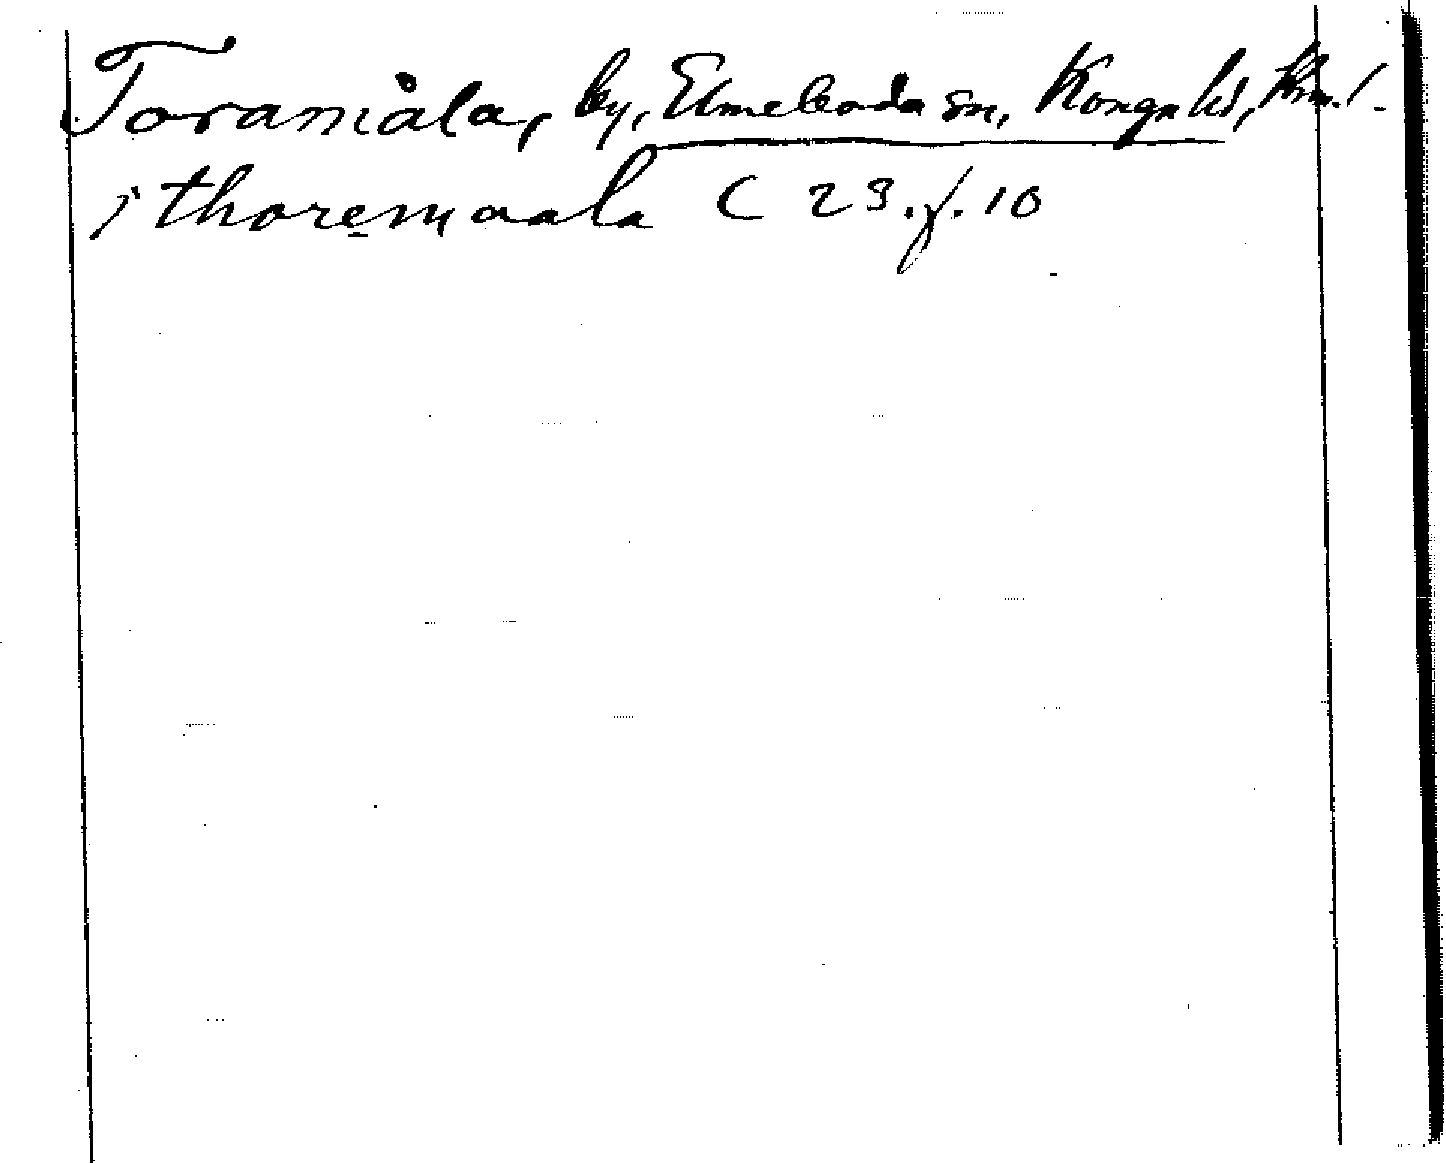 Toramåla, by, Elmeboda sn, Konga hd, Krn. l.
i thoremaala C 23. f. 10